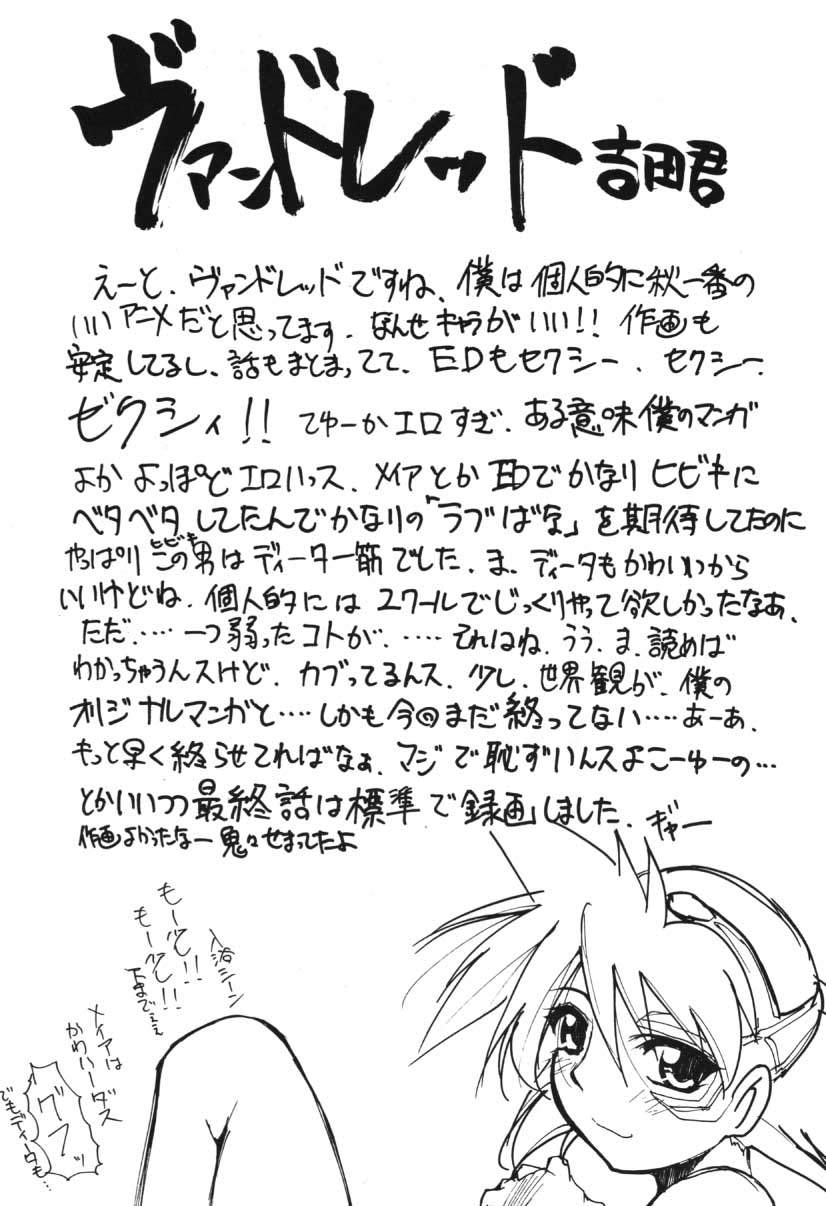 ヴァンドレッド 吉田君
えーと、ヴァンドレッドですね、僕は個人的に秋一番の
いいアニメだと思ってます、なんせキャラがいい!! 作画も
安定してるし、話もまとまってて、EDもセクシー、セクシー
ゼクシィ!! てゆーかエロすぎ、ある意味僕のマンガ
よかよっぽどエロいっス、メイアとかEDでかなりヒビキに
ベタベタしてたんでかなりの「ラブばな」を期待してたのに
やっぱりこの男はディーター筋でした、ま、ディータもかわいいから
ヒビキ
いいけどね、個人的にはユワールでじっくりやって欲しかったなあ、
ただ……一つ弱ったコトが、……それはね、うう、ま、読めば
わかっちゃうんスけど、カブってるんス、少し、世界観が、僕の
オリジナルマンガと……しかも今回まだ終ってない……あーあ、
もっと早く終らせてればなぁ、マジで恥ずいんスよこーゆーの…
とかいいつつ最終話は標準で録画しました、ギャー
作画よかったなー鬼々せまってたよ
入浴シーン
もー少し!!
もー少し!!
下までぇぇ
メイアは
かわいーダス
グフッ
でもディータも…